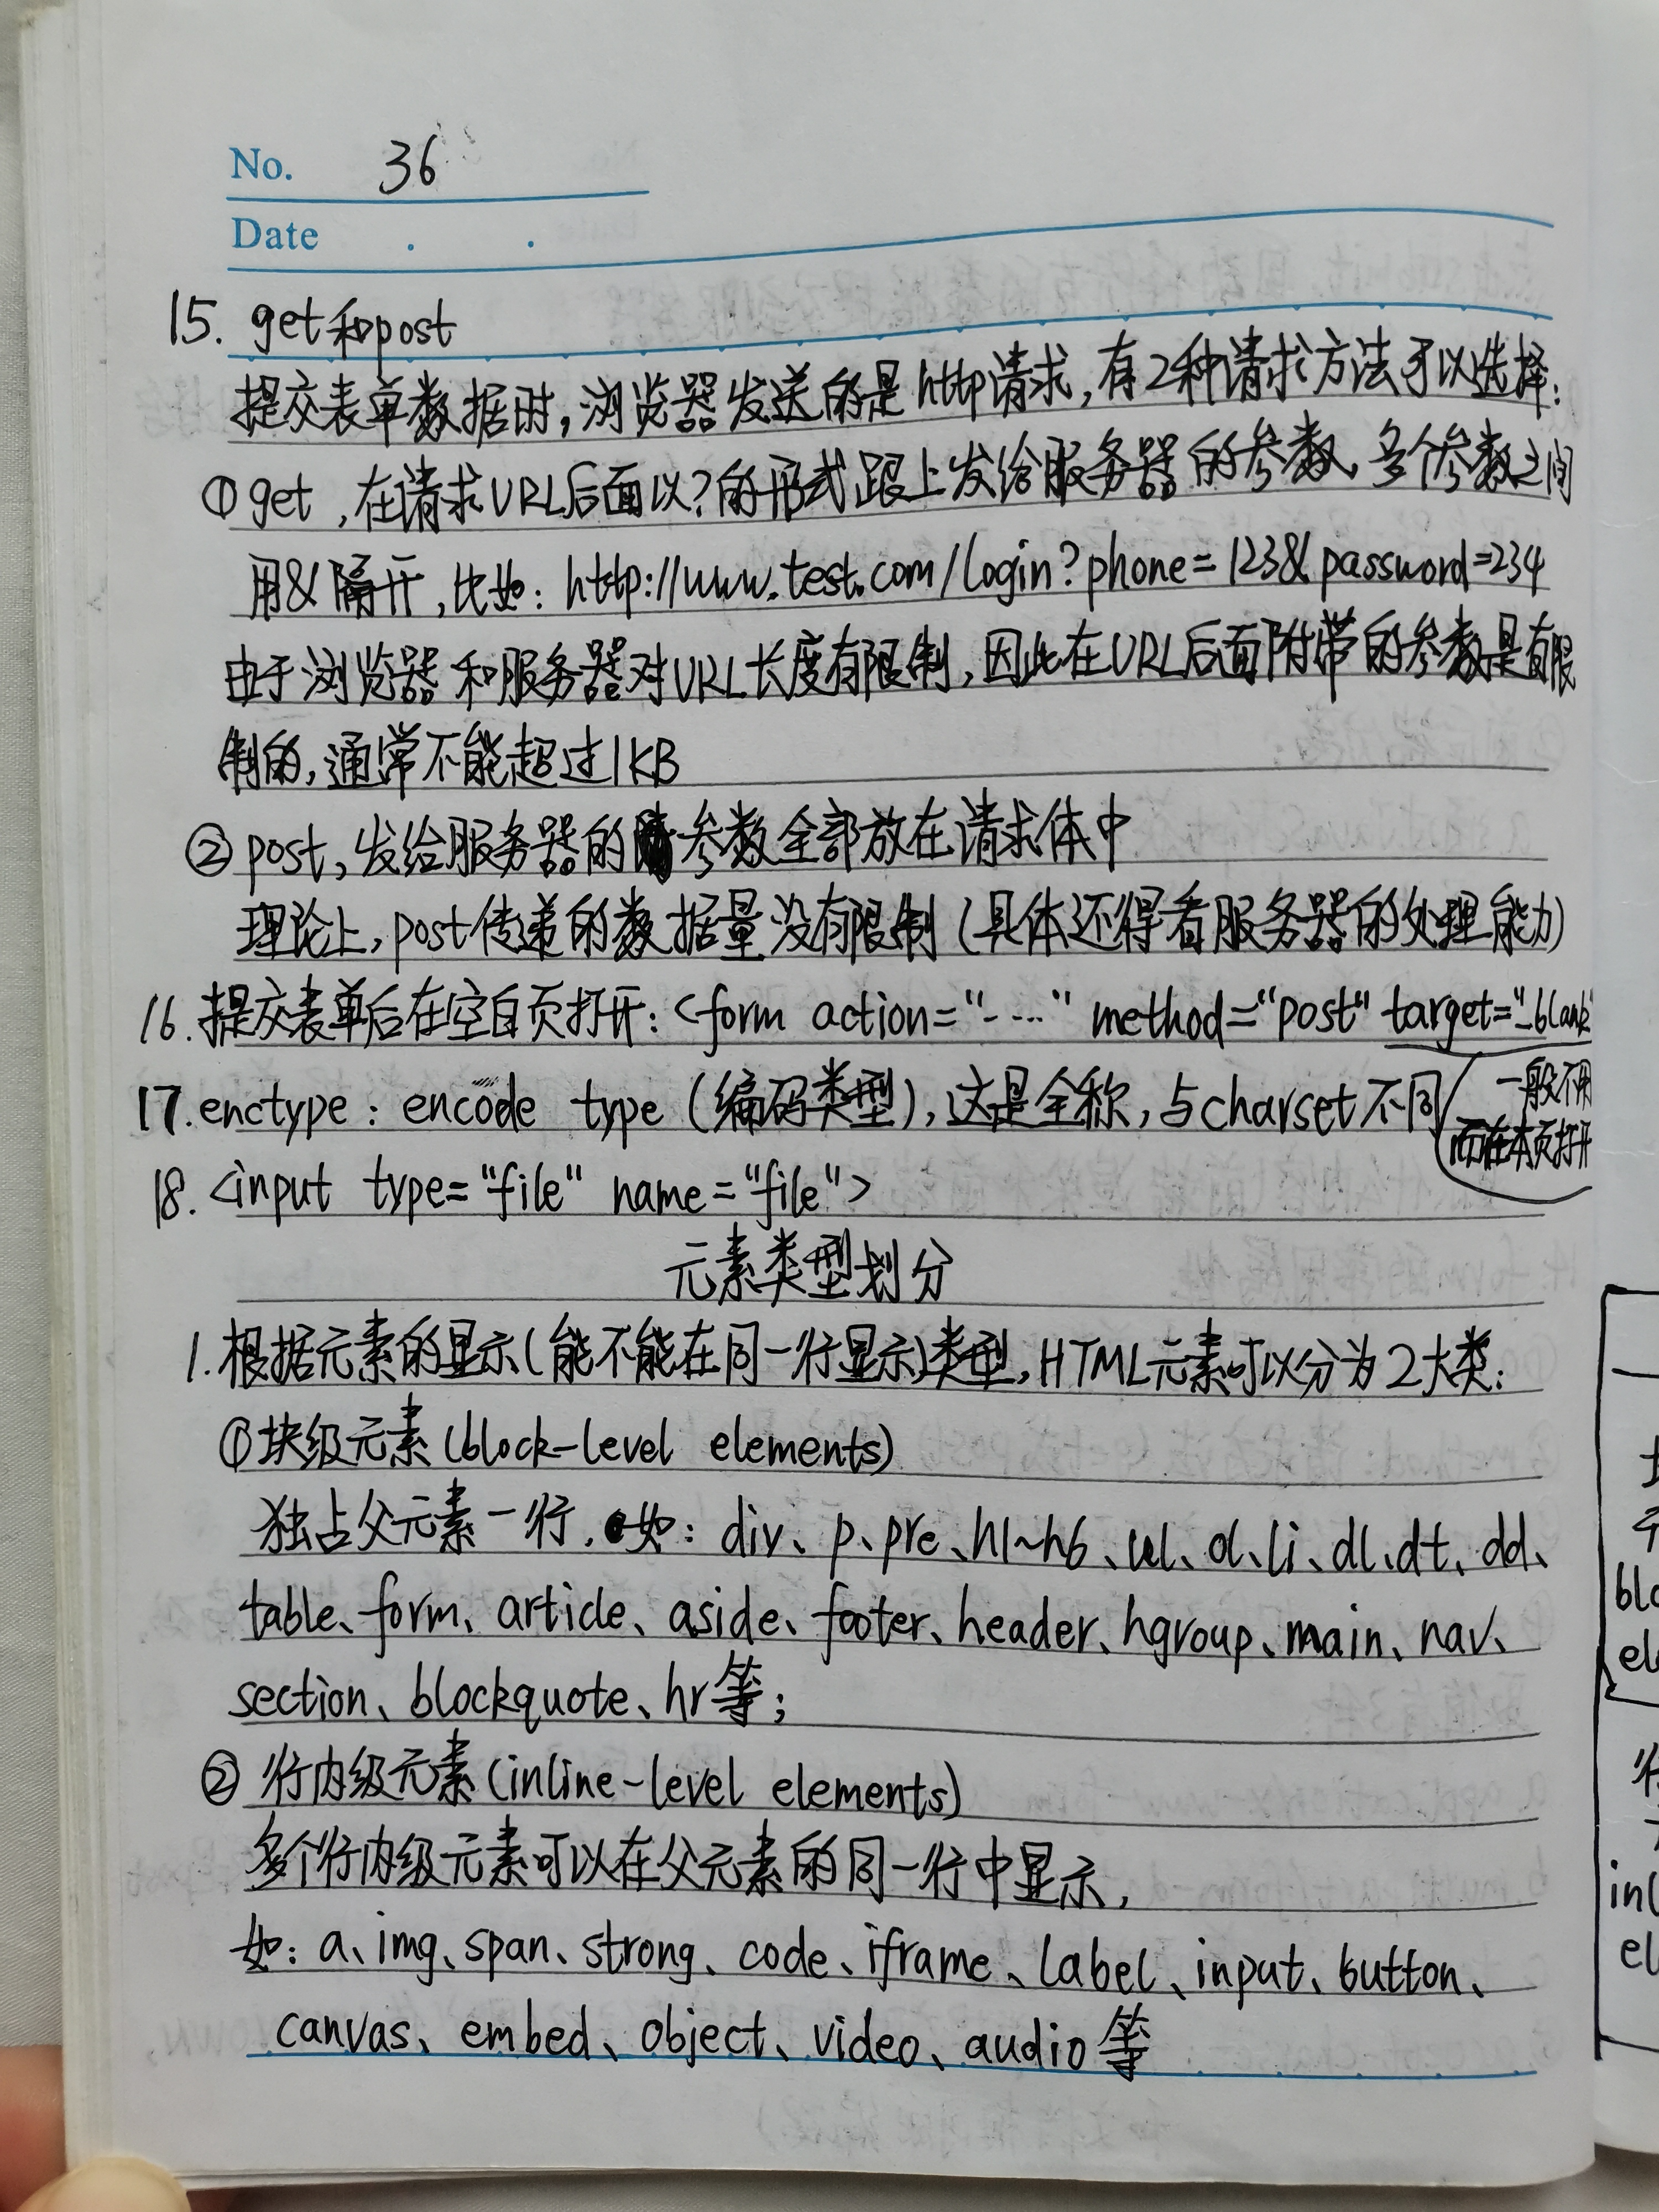 No. 36
Date . .
15. get和post
提交表单数据时,浏览器发送的是http请求,有2种请求方法可以选择:
①get,在请求URL后面以?的形式跟上发给服务器的参数、多个参数之间
用&隔开,比如:http://www.test.com/login?phone=123&password=234
由于浏览器和服务器对URL长度有限制,因此在URL后面附带的参数是有限
制的,通常不能超过1KB
②post,发给服务器的参数全部放在请求体中
理论上,post传递的数据量没有限制(具体还得看服务器的处理能力)
16.提交表单后在空白页打开:<form action="-...." method="post" target="_blank"
17.enctype: encode type (编码类型),这是全称,与charset不同
一般不用
而在本页打开
18.<input type="file" name="file">
元素类型划分
1.根据元素的显示(能不能在同一行显示)类型,HTML元素可以分为2大类:
①块级元素(block-level elements)
独占父元素一行.如:div、p、pre、h1~h6、ul、ol、li、dl、dt、dd、
table、form、article、aside、footer、header、hgroup、main、nav、
section、blockquote、hr等;
②行内级元素(inline-level elements)
多个行内级元素可以在父元素的同一行中显示,
如:a、img、span、strong、code、iframe、label、input、button、
canvas、embed、object、video、audio等
blo
el
行
inl
el